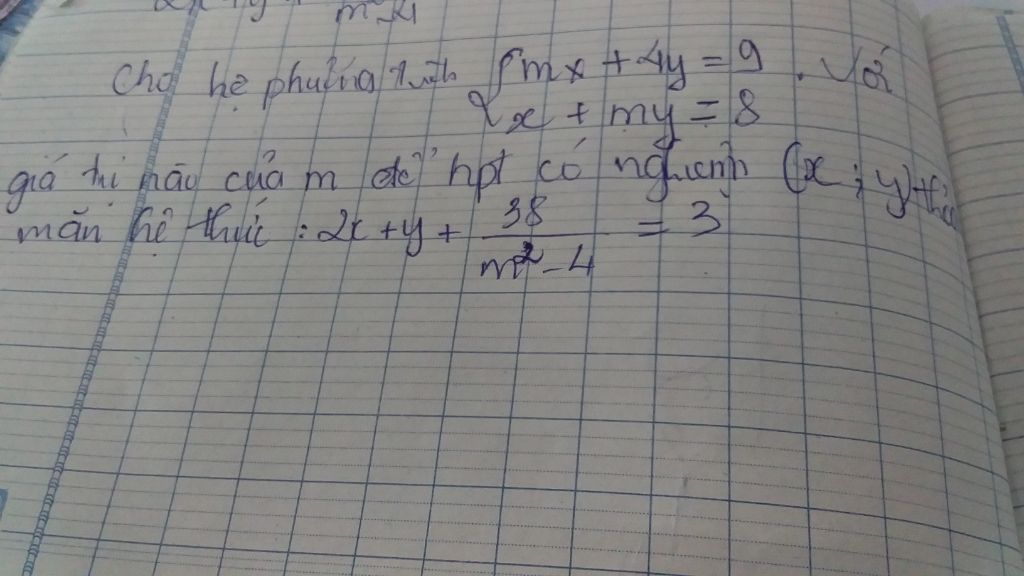 m²-4
Cho hệ phương trình { mx + 4y = 9 . Với
x + my = 8
giá trị nào của m để hpt có nghiệm (x ; y) thỏa
mãn hệ thức : 2x + y + 38 / m² - 4 = 3